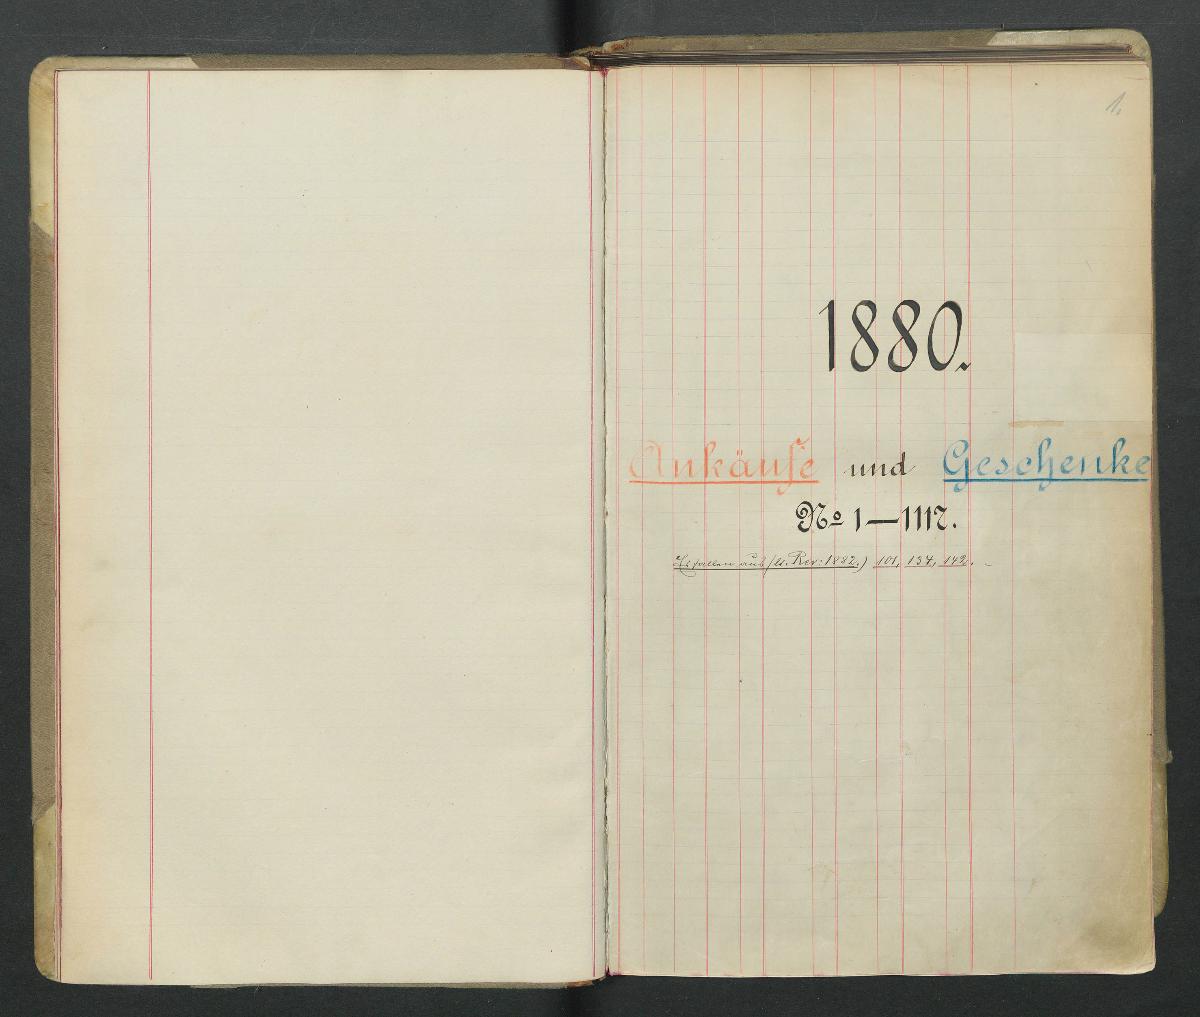 1.
1880.
Ankäufe und Geschenke
No 1—1117.
Es fallen aus (lt. Rev: 1882.) 101, 134, 142.